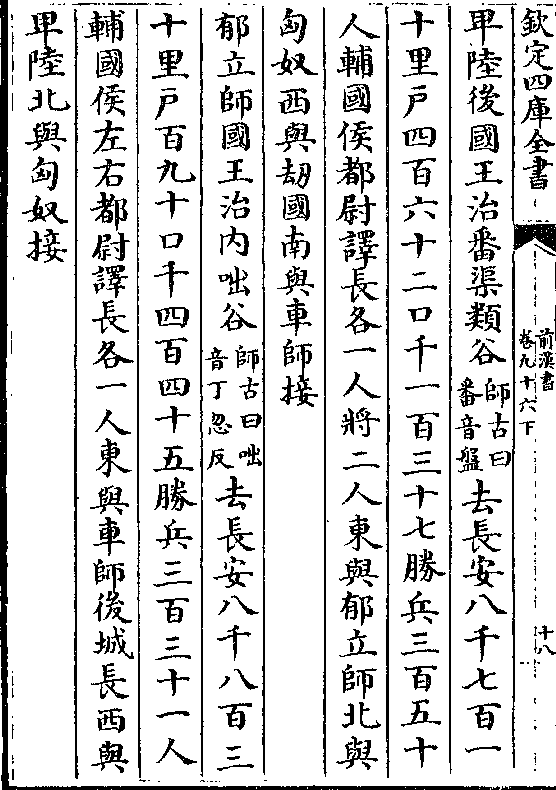 欽定四庫全書
前漢書
卷九十六下
十八
卑陸後國王治番渠類谷師古曰番音盤去長安八千七百一
十里戶四百六十二口千一百三十七勝兵三百五十
人輔國侯都尉譯長各一人將二人東與郁立師北與
匈奴西與劫國南與車師接
郁立師國王治內咄谷師古曰咄音丁忽反去長安八千八百三
十里戶百九十口千四百四十五勝兵三百三十一人
輔國侯左右都尉譯長各一人東與車師後城長西與
卑陸北與匈奴接